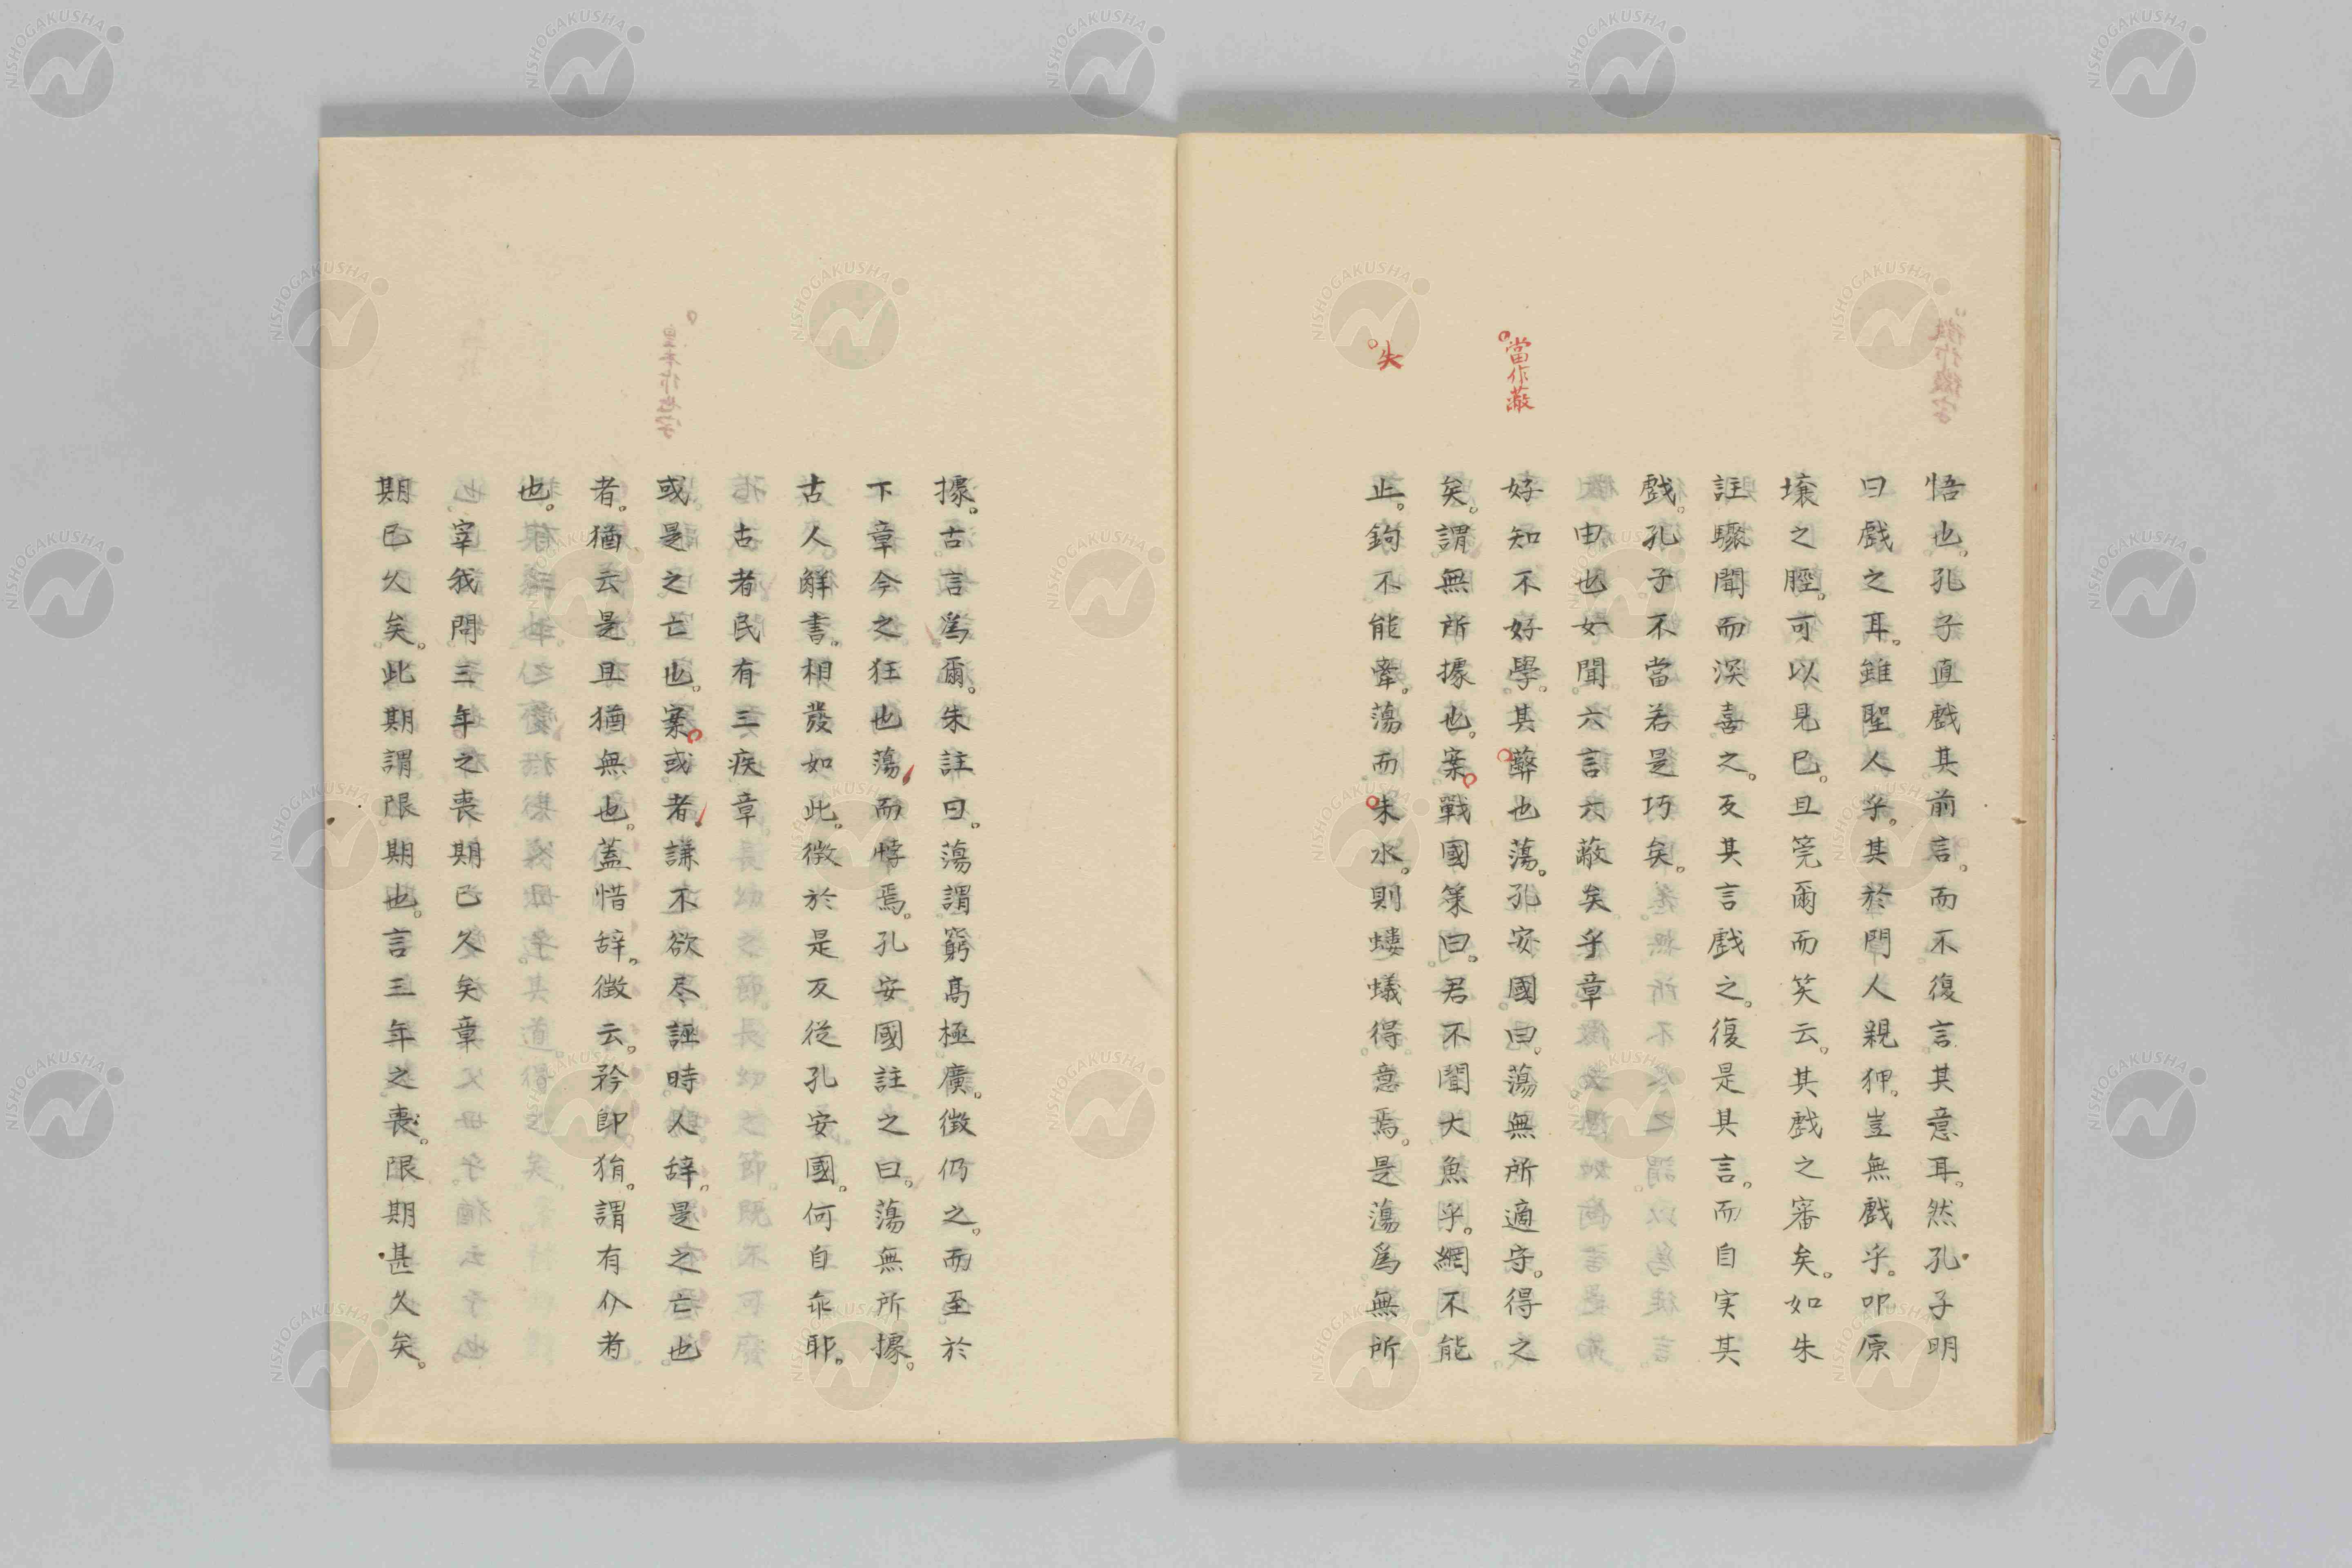 悟也。孔子直戲其前言。而不復言其意耳。然孔子明
曰戲之耳。雖聖人乎。其於門人親狎。豈無戲乎。叩原
壤之脛。可以見已。且莞爾而笑云。其戲之審矣。如朱
註驟聞而深喜之。反其言戲之。復是其言。而自実其
戲。孔子不當若是巧矣。
由也女聞六言六蔽矣乎章
當作蔽
好知不好學。其弊也蕩。孔安國曰。蕩無所適守。得之
矣。謂無所據也。案戰國策曰。君不聞大魚乎。網不能
失
止。鉤不能牽。蕩而朱水。則螻蟻得意焉。是蕩爲無所
據。古言爲爾。朱註曰。蕩謂窮高極廣。徴仍之。而至於
下章今之狂也蕩而悖焉。孔安國註之曰。蕩無所據。
古人觧書。相發如此。徴於是反從孔安國。何自乖耶。
古者民有三疾章
或是之亡也。案或者謙不欲尽誣時人辞。是之亡也
者。猶云是且猶無也。蓋惜辞。徴云。矜即狷。謂有介者
也。
宰我問三年之喪期已久矣章
期已久矣。此期謂限期也。言三年之喪。限期甚久矣。
NISHOGAKUSHA